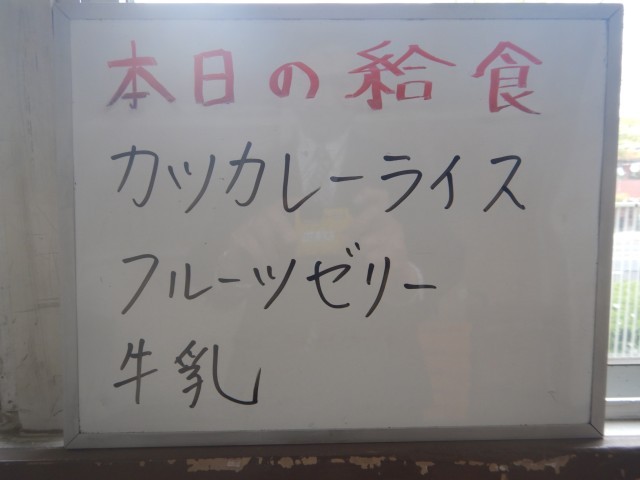 本日の給食
カツカレーライス
フルーツゼリー
牛乳